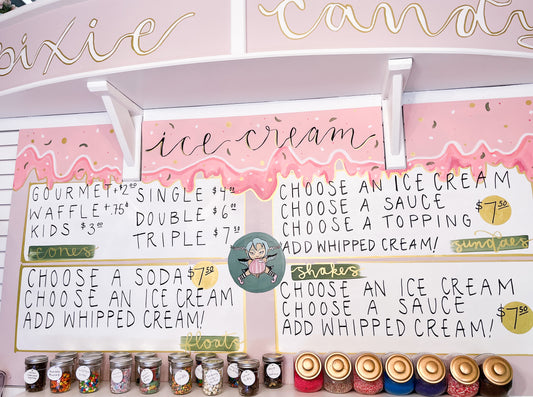 pixie candy
ice cream
GOURMET +$2.00
WAFFLE +.75¢
KIDS $3.00
cones
SINGLE $4.00
DOUBLE $6.00
TRIPLE $7.50
CHOOSE AN ICE CREAM
CHOOSE A SAUCE
CHOOSE A TOPPING
ADD WHIPPED CREAM!
$7.50
sundaes
CHOOSE A SODA
CHOOSE AN ICE CREAM
ADD WHIPPED CREAM!
$7.50
floats
shakes
CHOOSE AN ICE CREAM
CHOOSE A SAUCE
ADD WHIPPED CREAM!
$7.50